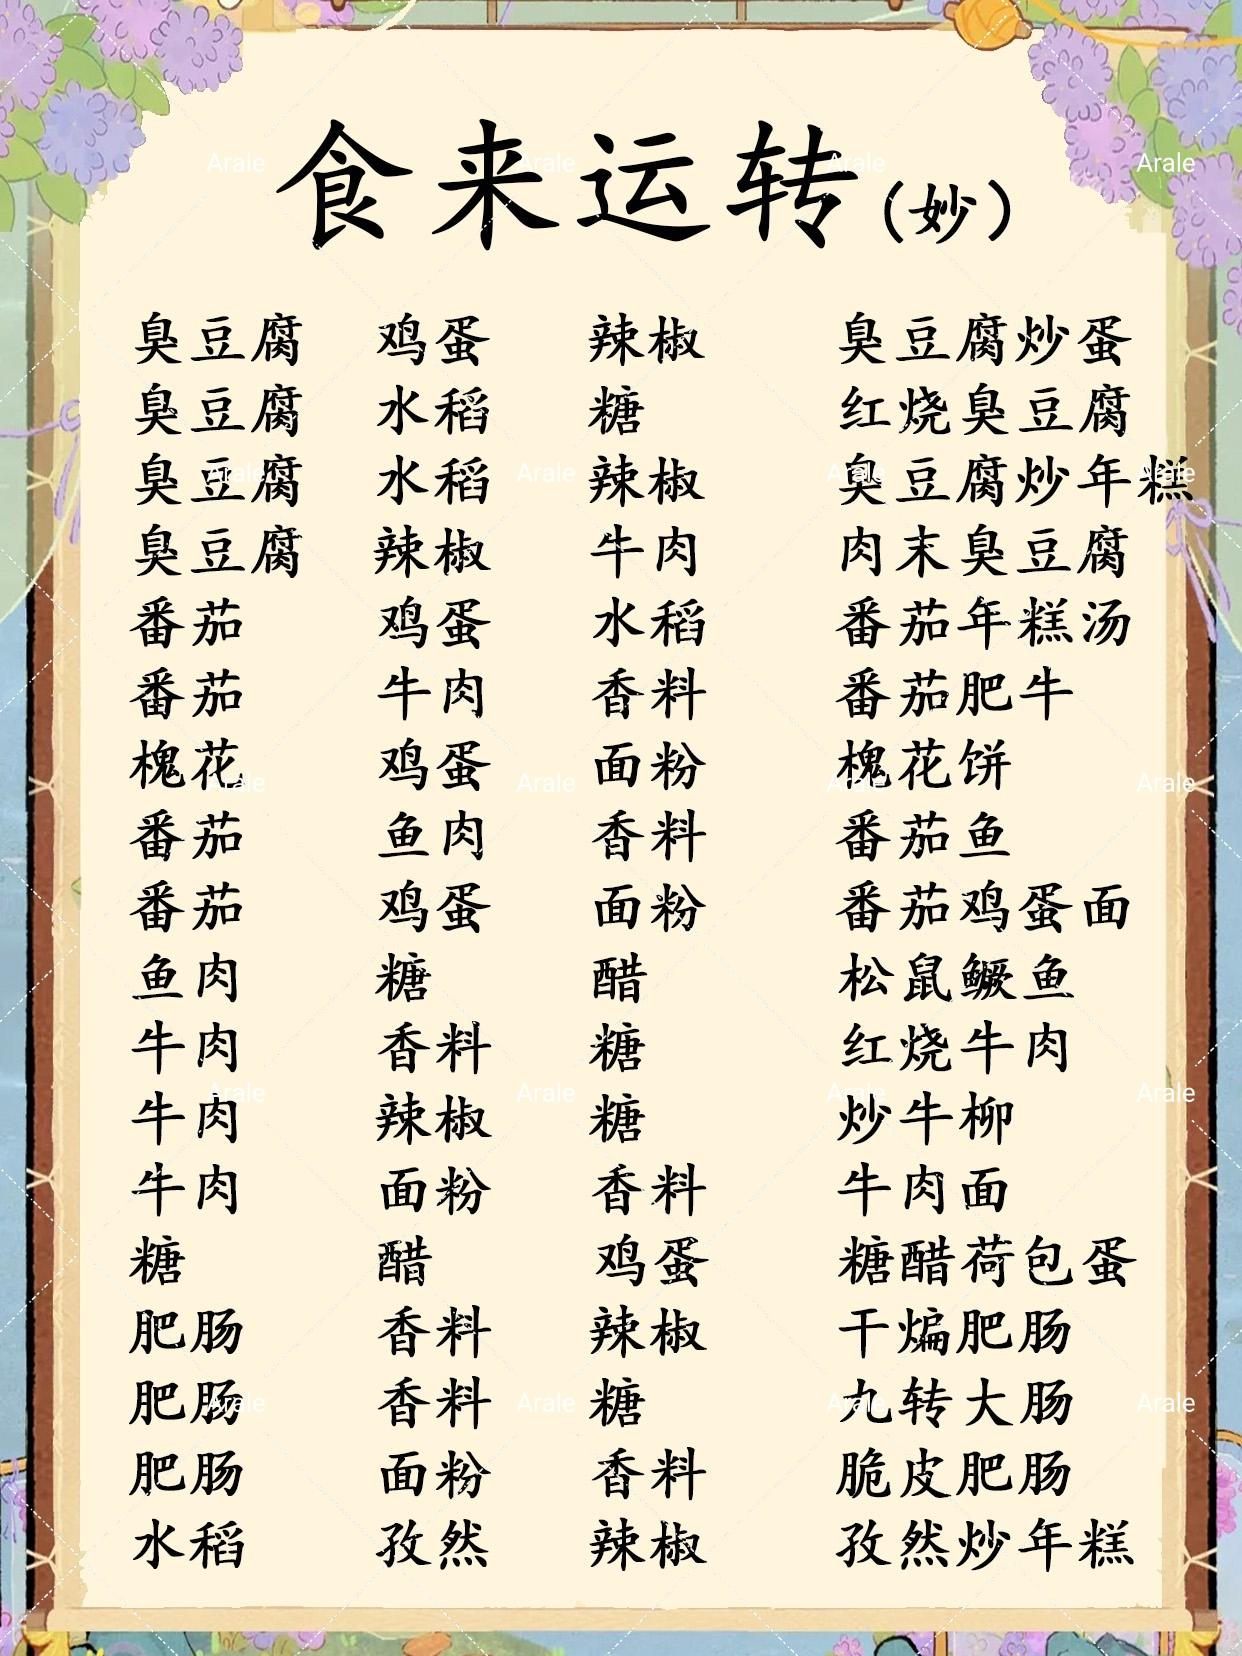 食来运转(妙)
臭豆腐 鸡蛋 辣椒 臭豆腐炒蛋
臭豆腐 水稻 糖 红烧臭豆腐
臭豆腐 水稻 辣椒 臭豆腐炒年糕
臭豆腐 辣椒 牛肉 肉末臭豆腐
番茄 鸡蛋 水稻 番茄年糕汤
番茄 牛肉 香料 番茄肥牛
槐花 鸡蛋 面粉 槐花饼
番茄 鱼肉 香料 番茄鱼
番茄 鸡蛋 面粉 番茄鸡蛋面
鱼肉 糖 醋 松鼠鳜鱼
牛肉 香料 糖 红烧牛肉
牛肉 辣椒 糖 炒牛柳
牛肉 面粉 香料 牛肉面
糖 醋 鸡蛋 糖醋荷包蛋
肥肠 香料 辣椒 干煸肥肠
肥肠 香料 糖 九转大肠
肥肠 面粉 香料 脆皮肥肠
水稻 孜然 辣椒 孜然炒年糕
Arale Arale Arale Arale
Arale Arale Arale Arale
Arale Arale Arale Arale
Arale Arale Arale Arale
Arale Arale Arale Arale